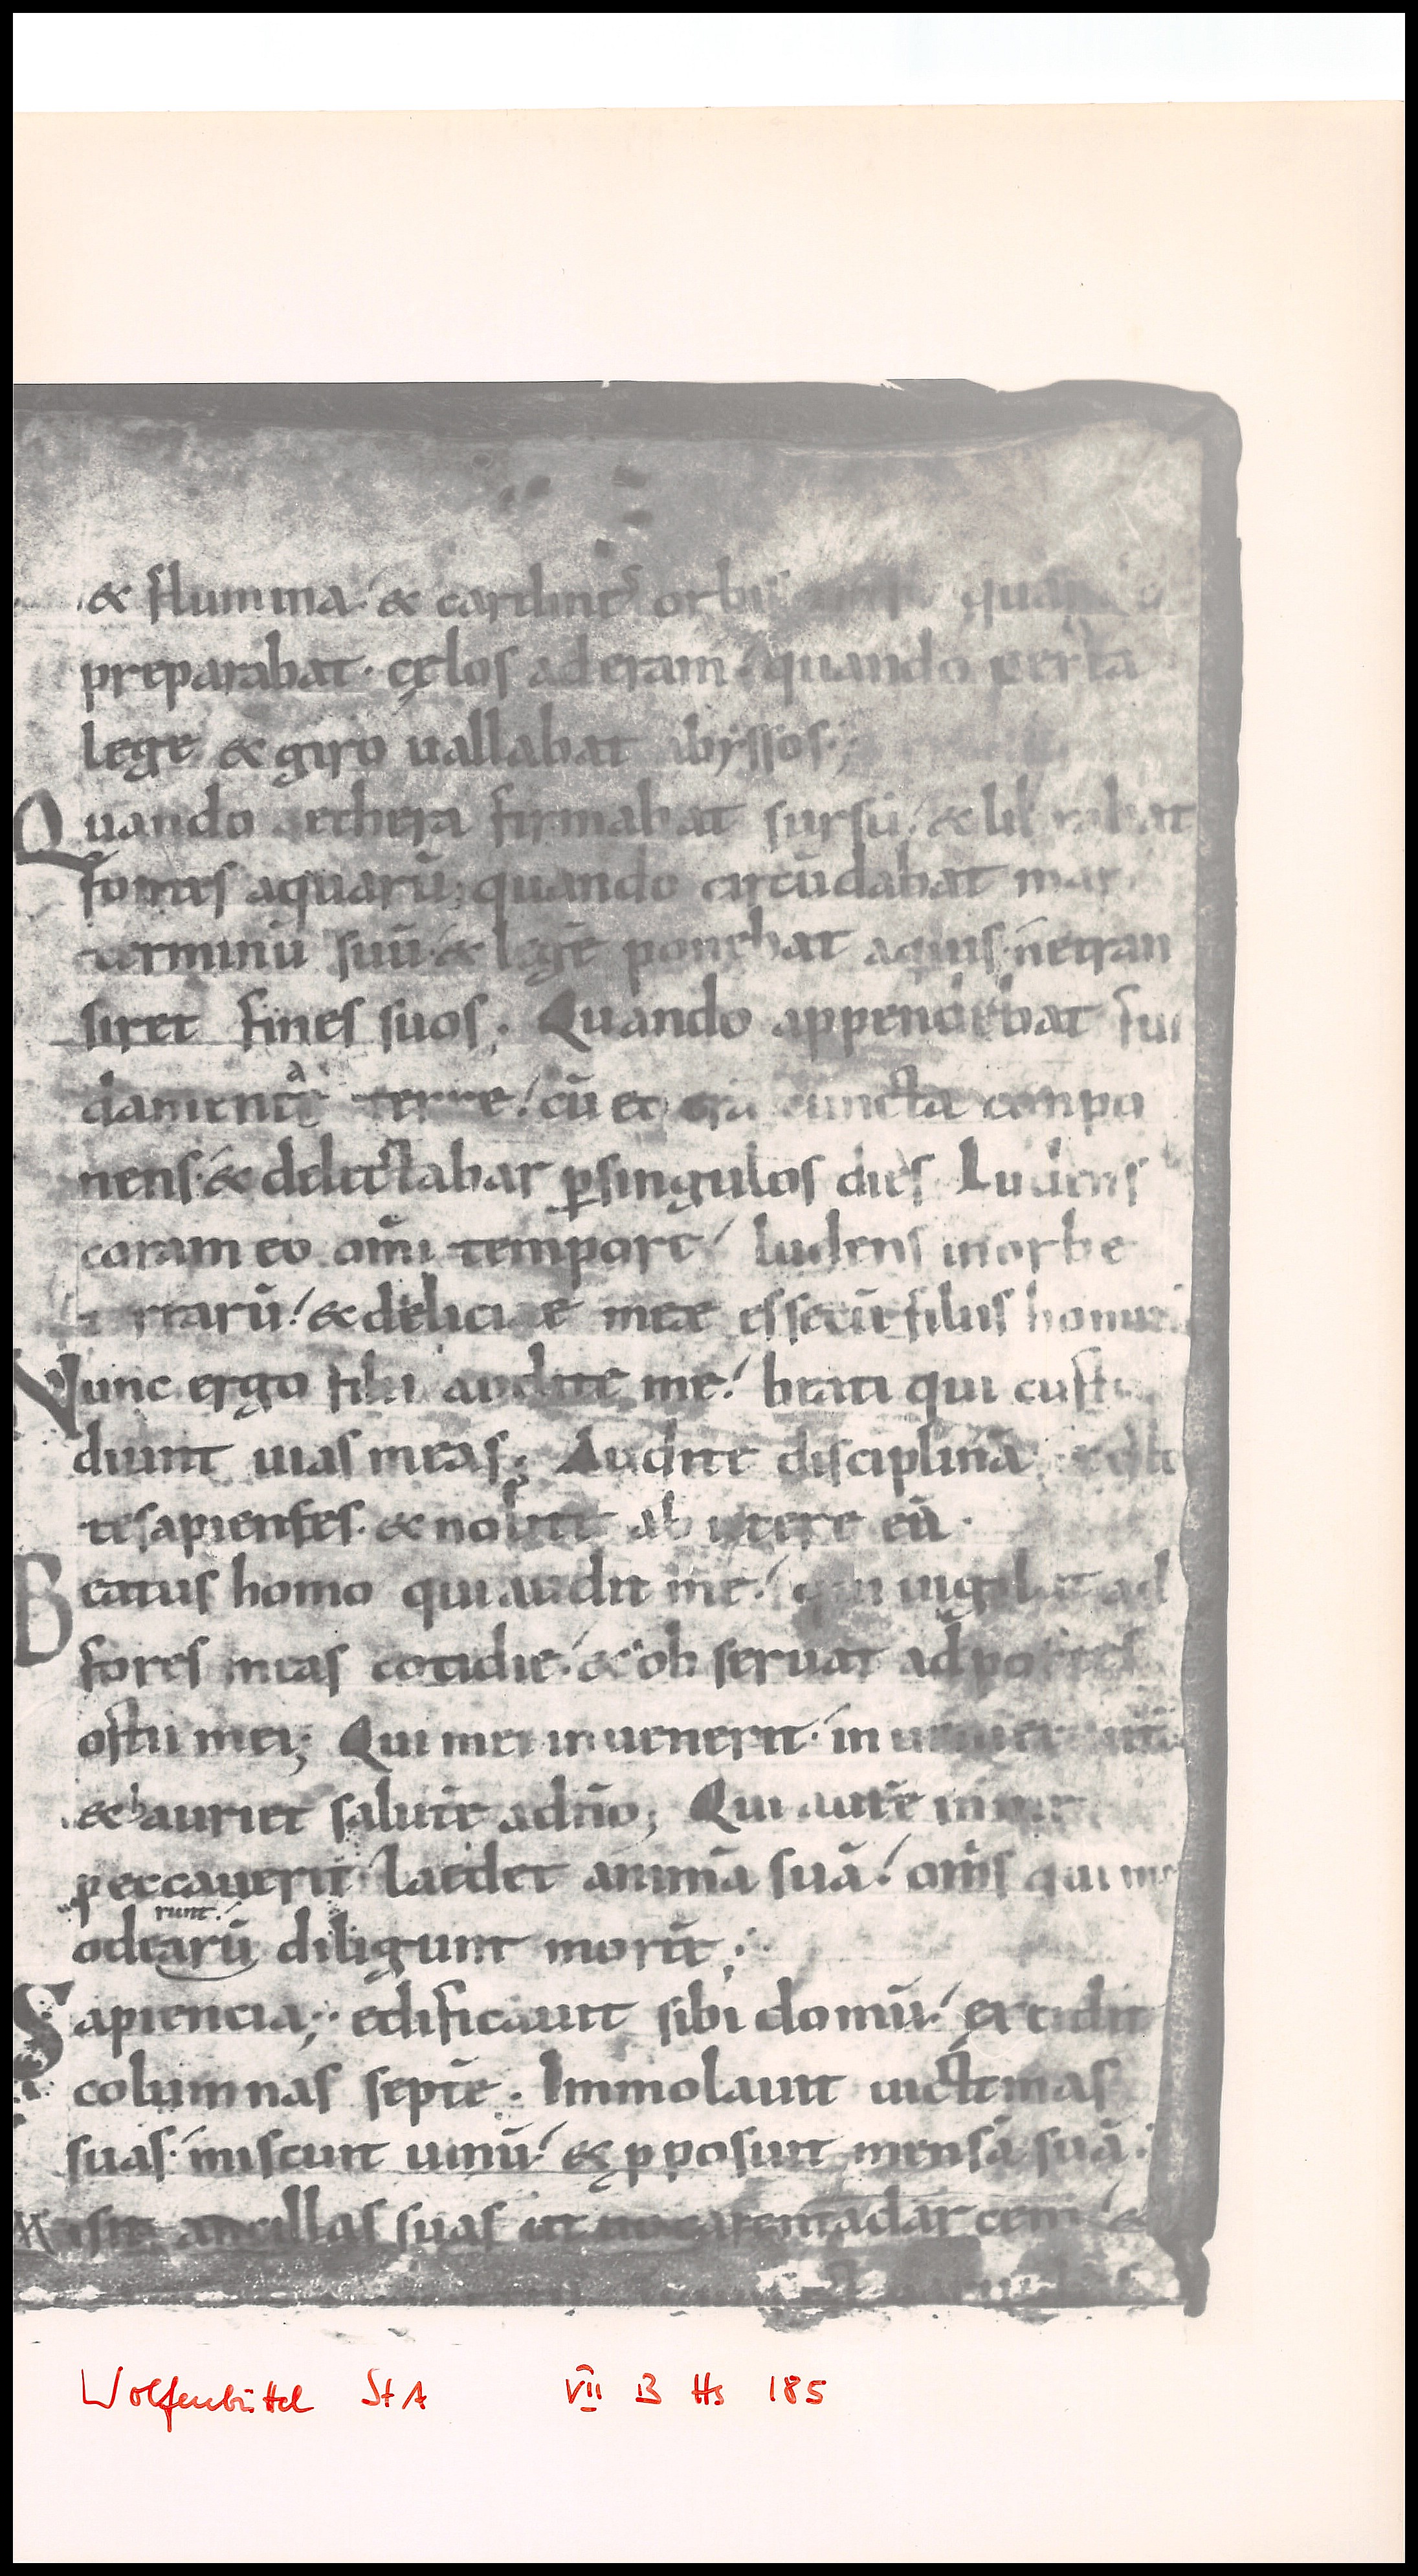 & flumina & cardines orbis
preparabat · cęlos aderam quando certa
lege & giro uallabat abyssos ;
Quando aethera firmabat sursū & librabat
fontes aquarū ; quando circūdabat mare
terminū suū · & legē ponebat aquis · ne tran
siret fines suos ; Quando appendebat fun
damenta terre cū eo erā cuncta conpo
nens · & delectabar p singulos dies Ludens
coram eo om̄i tempore ludens in orbe
terrarū & deliciae meae esse cū filiis hominū
Nunc ergo filii audite me beati qui custo
diunt uias meas ; Audite disciplinā
te sapientes · & nolite abicere eā ·
Beatus homo qui audit me qui uigilat ad
fores meas cotidie & obseruat ad postes
ostii mei ; Qui me inuenerit · inueniet uitā
& hauriet salutē a dn̄o ; Qui autē in me
peccauerit laedet animā suā om̄s qui me
oderunt diligunt mortē ;
Sapiencia ; edificauit sibi domū excidit
columnas septē . Immolauit uictimas
suas · miscuit uinū & p̱posuit mensā suā ·
Misit ancillas suas ut uocarent ad arcem &
Wolfenbüttel StA VII B Hs 185